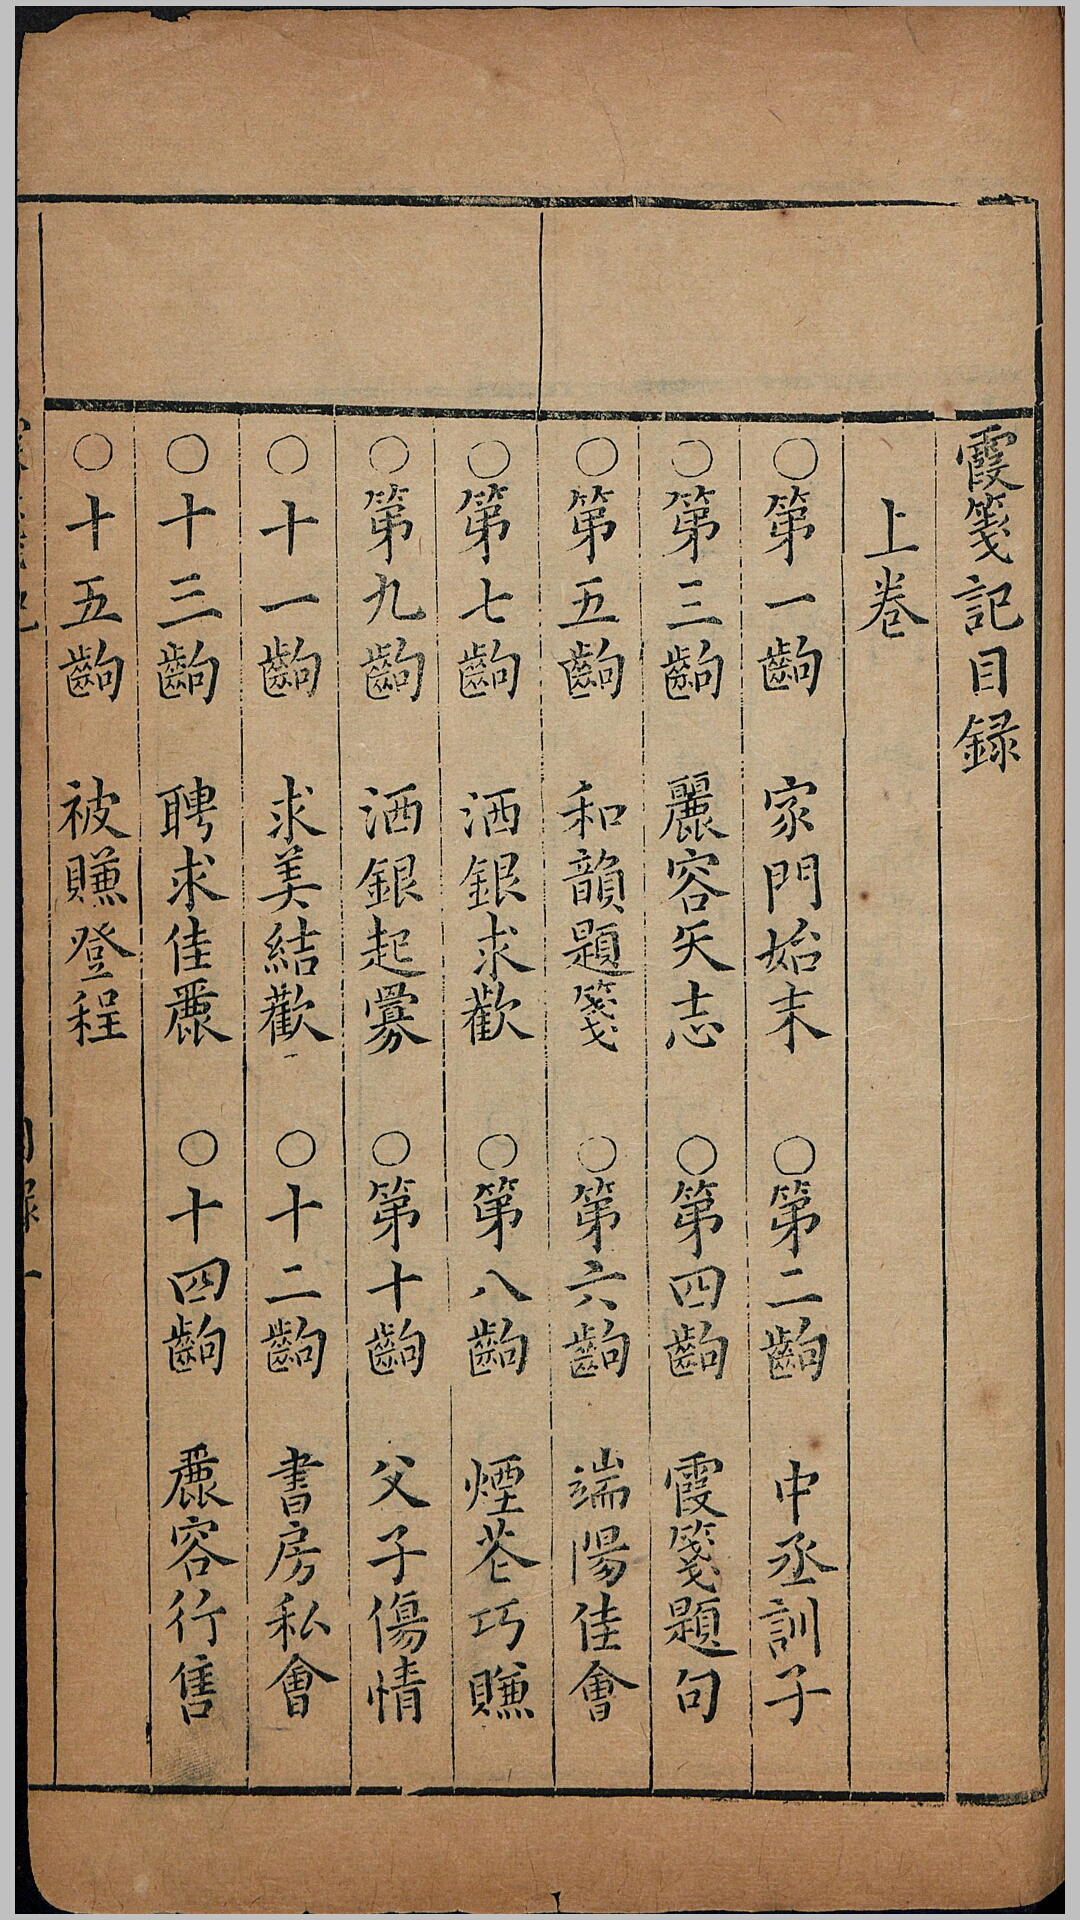 霞箋記目録
上卷
○第一齣　家門始末　○第二齣　中丞訓子
○第三齣　麗容矢志　○第四齣　霞箋題句
○第五齣　和韻題箋　○第六齣　端陽佳會
○第七齣　洒銀求歡　○第八齣　煙花巧賺
○第九齣　洒銀起釁　○第十齣　父子傷情
○十一齣　求美結歡　○十二齣　書房私會
○十三齣　聘求佳麗　○十四齣　麗容行售
○十五齣　被賺登程